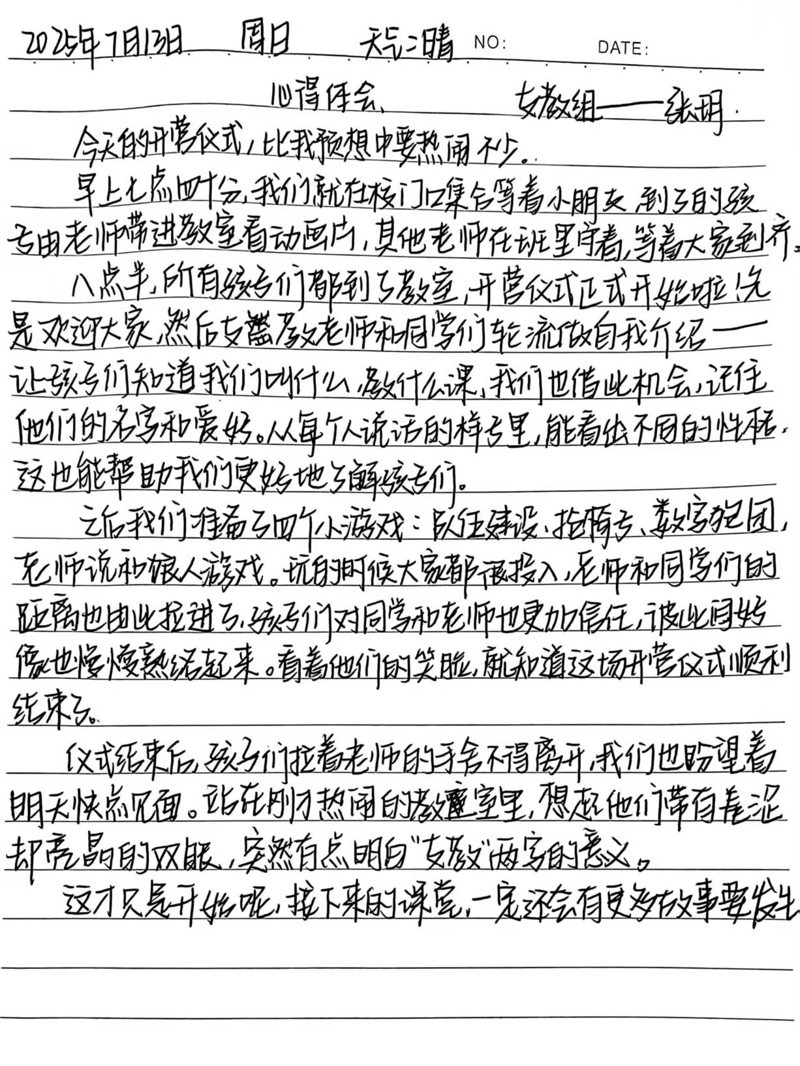 2025年7月13日 周日 天气:晴 NO: DATE:
心得体会 支教组——张玥
今天的开营仪式,比我预想中要热闹不少。
早上七点四十分,我们就在校门口集合等着小朋友,到了的孩
子由老师带进教室看动画片,其他老师在班里守着,等着大家到齐。
八点半,所有孩子们都到了教室,开营仪式正式开始啦!先
是欢迎大家,然后支教老师和同学们轮流做自我介绍——
让孩子们知道我们叫什么,教什么课,我们也借此机会,记住
他们的名字和爱好。从每个人说话的样子里,能看出不同的性格,
这也能帮助我们更好地了解孩子们。
之后我们准备了四个小游戏:队伍建设、抢椅子、数字抱团,
老师说和狼人游戏。玩的时候大家都很投入,老师和同学们的
距离也由此拉进了,孩子们对同学和老师也更加信任,彼此间好
像也慢慢熟络起来。看着他们的笑脸,就知道这场开营仪式顺利
结束了。
仪式结束后,孩子们拉着老师的手舍不得离开,我们也盼望着
明天快点见面。站在刚才热闹的教室里,想起他们带有羞涩
却亮晶的双眼,突然有点明白"支教"两字的意义。
这才只是开始呢,接下来的课堂,一定还会有更多故事要发生